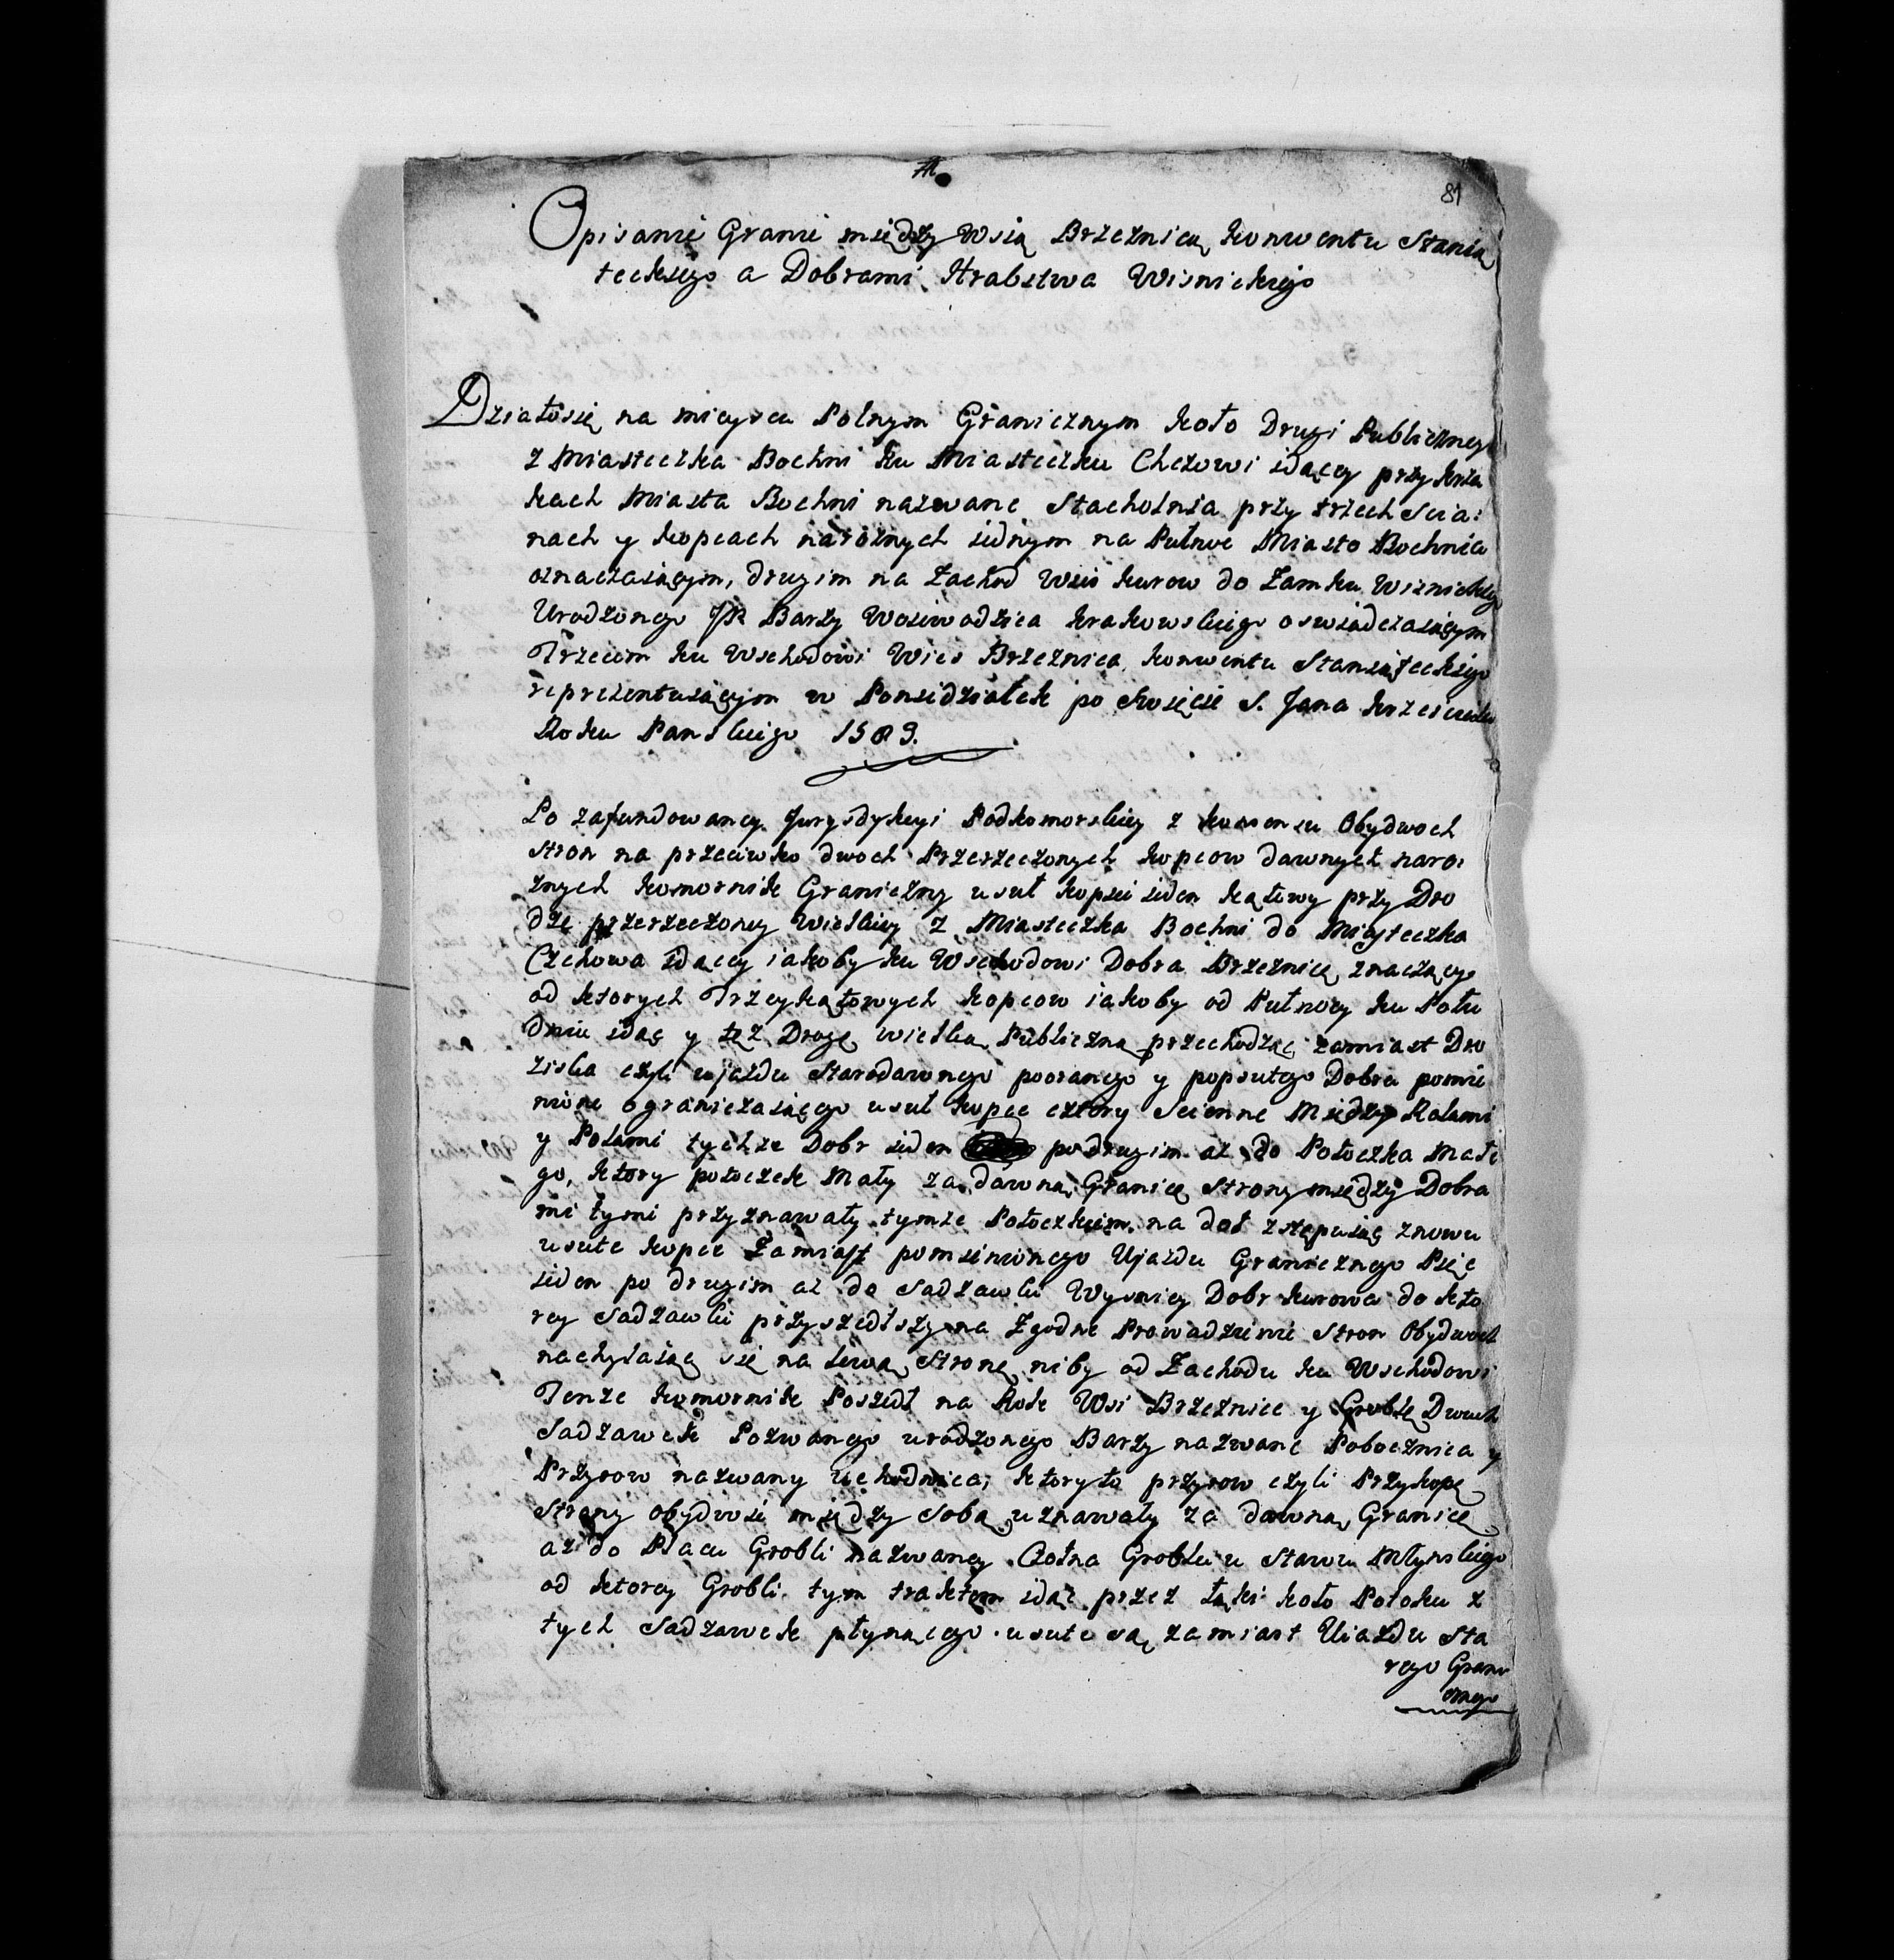 81
Opisanie Granic między Wsią Brzeznicą Konwentu Stanią
teckiego a Dobrami Hrabstwa Wisnickiego
Działosię na mieyscu Polnym Granicznym koło Drogi Publiczney
z Miasteczka Bochni ku Miasteczku Chczowi idącey przy krza
kach Miasta Bochni nazwane Stacholnia przy trzech Scia:
nach y kopcach narożnych iednym na Pułnoc Miasto Bochnia
oznaczaiącym, drugim na Zachod Wieś Kurow do Zamku Wiznickiego
Urodzonego JP. Barzy Woiewodzica Krakowskiego oswiadczaiącym
Trzecim ku Wschodowi Wies Brzeznica Konwentu Staniąteckiego
reprezentuiącym w Poniedziałek po Swięcie S. Jana Krzciciela
Roku Panskiego 1589.
Po zafundowaney Jurysdykcyi Podkomorskiey z konsensu Obydwoch
stron na przeciwko dwoch Przerzeczonych kopcow dawnych naro:
żnych Komornik Graniczny usuł kopiec ieden kątowy przy Dro
dze przerzeczoney Wielkiey z Miasteczka Bochni do Miasteczka
Czchowa idącey iakoby ku Wschodowi Dobra Brzeznicę znaczący
od ktorych Trzeykątowych kopcow iakoby od Pułnocy ku Połu
dniu idąc y też Drogę wielką Publiczną przechodząc zamiast Dro
ziska czyli ujazdu Starodawnego pooranego y popsutego Dobra pomie
nione ograniczaiącego usuł kopce cztery Scienne Między Rolami
y Polami tychże Dobr ieden po drugim aż do Potoczka Małe
go, ktory potoczek Mały za dawną Granicę strony między Dobra
mi tymi przyznawały tymże Potoczkiem na doł zstępuiąc znowu
usute kopce Zamiast pomienionego Ujazdu Granicznego Pięc
ieden po drugim aż do Sadzawki Wyzniey Dobr Kurowa do kto
rey Sadzawki przyszedłszy na Zgodne Prowadzenie Stron Obydwoch
nachylaiąc się na lewą Stronę niby od Zachodu ku Wschodowi
Tenże Komornik Poszedł na Rok Wsi Brzeznice y Groblę Dwuch
Sadzawek Pozwanego urodzonego Barzy nazwane Pobocznica y
Przyrow nazwany Uchodnica, ktoryto przyrow czyli Przykopę
Strony obydwie między Sobą uznawały za dawną Granicę
aż do Placu Grobli nazwaney Czołna Grobli u Stawu Młynskiego
od ktorey Grobli tym traktem idąc przez łąki koło Potoku z
tych Sadzawek płynącego usute są zamiast Uiazdu Sta
rego Grani
cznego